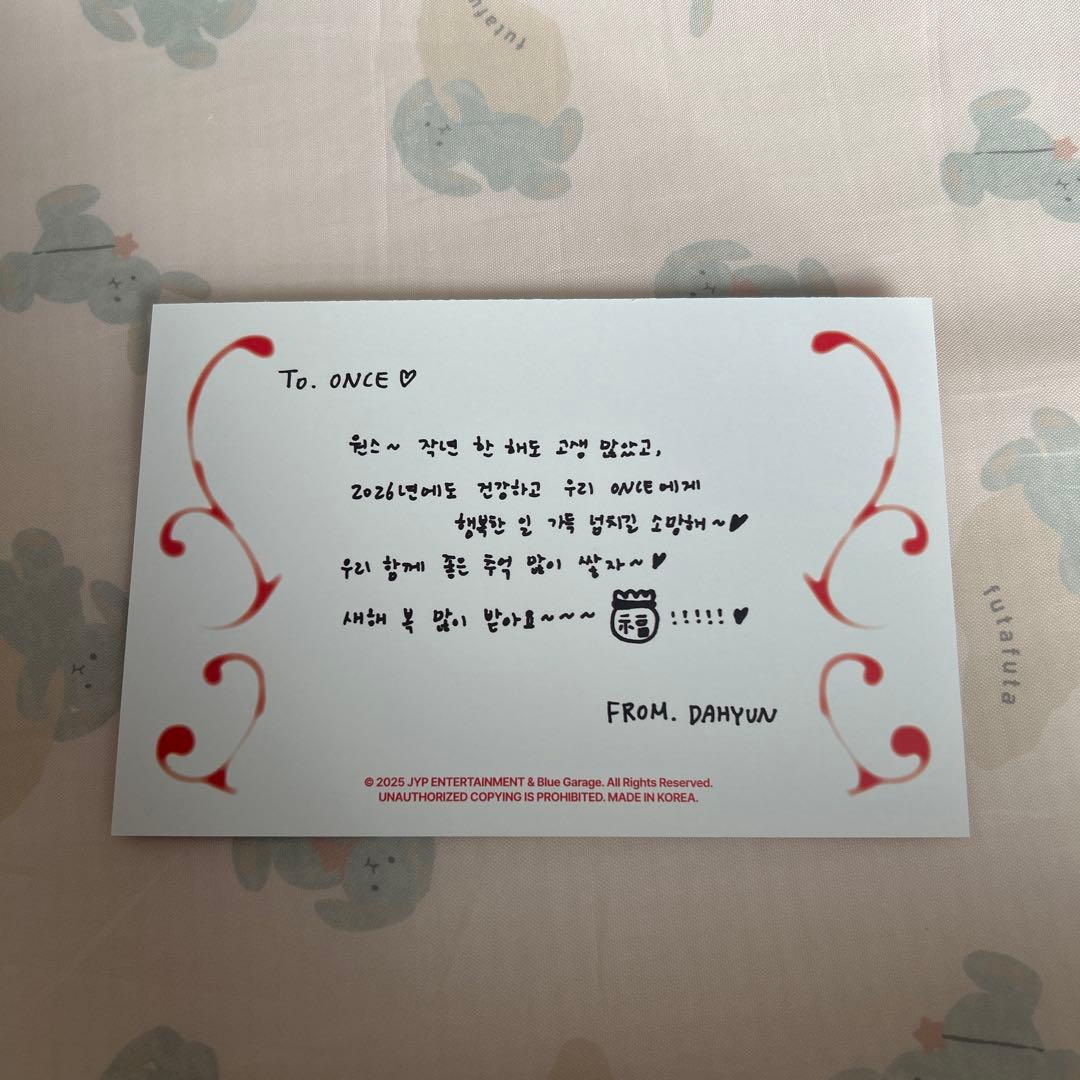 futafu
TO. ONCE ♡
원스~ 작년 한 해도 고생 많았고,
2026년에도 건강하고 우리 ONCE에게
행복한 일 가득 넘치길 소망해~♥
우리 함께 좋은 추억 많이 쌓자~♥
새해 복 많이 받아요~~~ 福 !!!!! ♥
FROM. DAHYUN
© 2025 JYP ENTERTAINMENT & Blue Garage. All Rights Reserved.
UNAUTHORIZED COPYING IS PROHIBITED. MADE IN KOREA.
futafuta